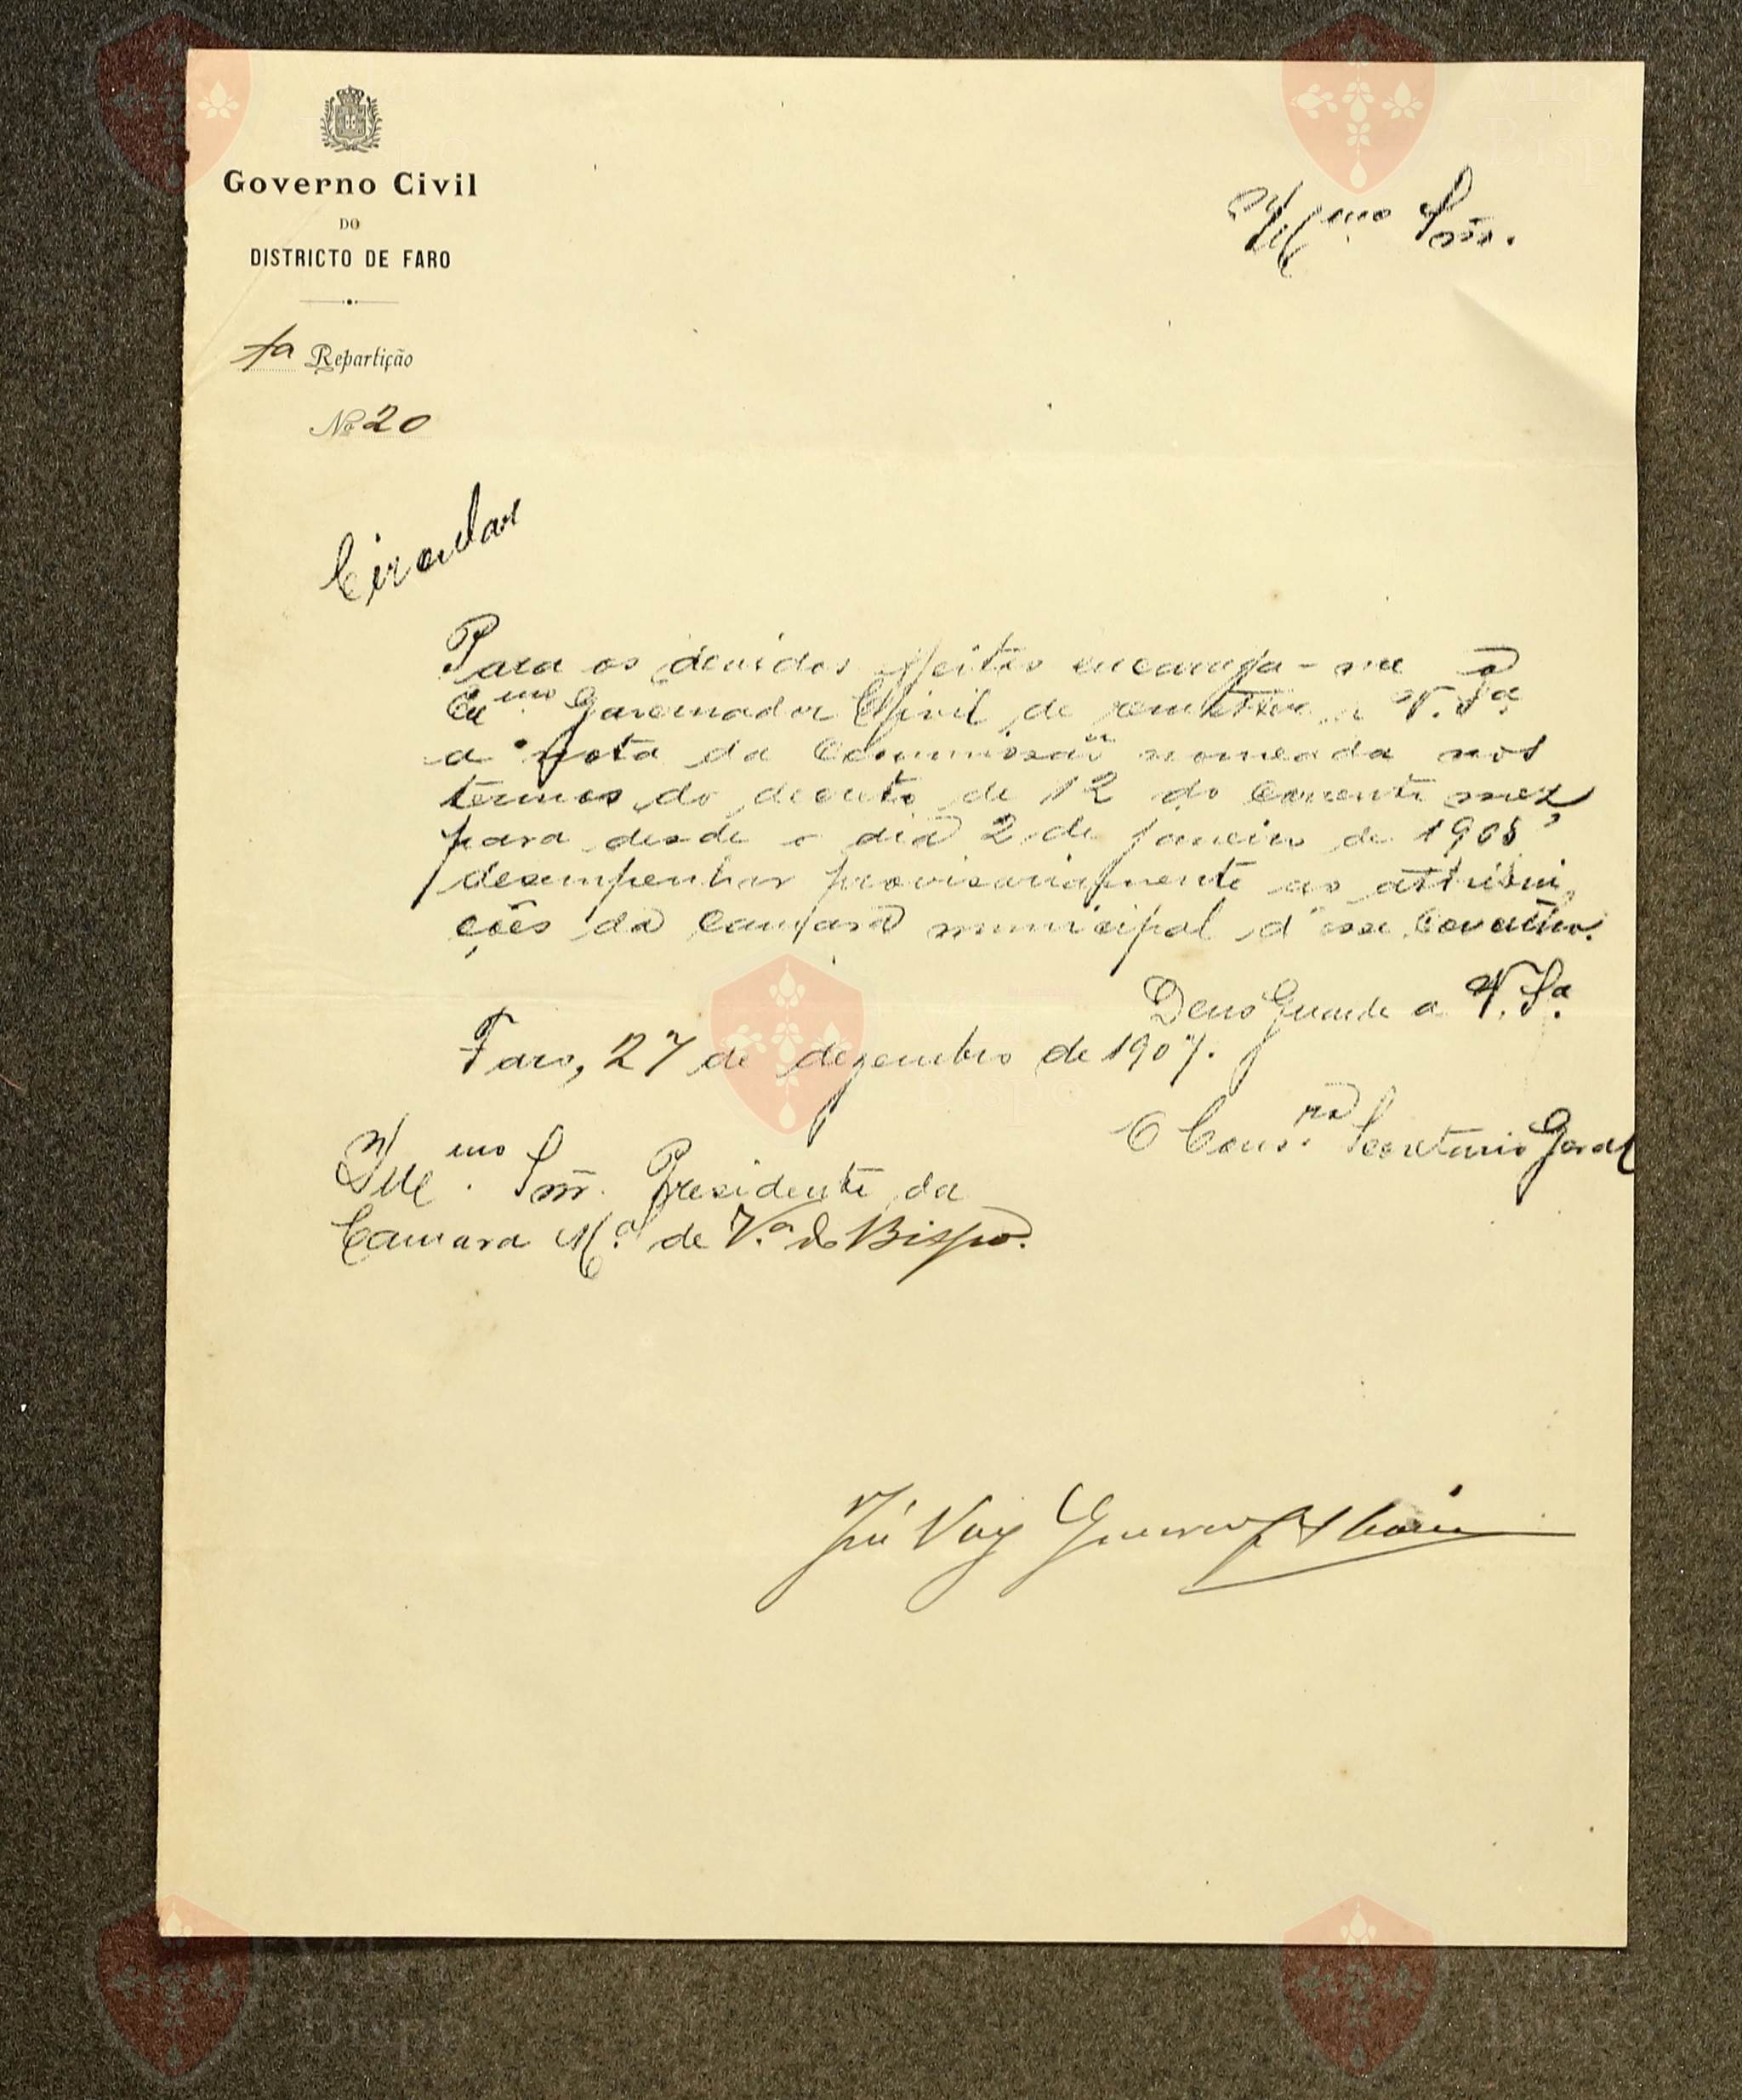 Governo Civil
DO
DISTRICTO DE FARO
1a Repartição
No 20
Illmo Snr.
Circular
Para os devidos effeitos encarrega-me o
Exmo Governador Civil de remetter a V. Sa
a nota da Commissão nomeada nos
termos do decreto de 12 do corrente mez
para desde o dia 2 de janeiro de 1908
desempenhar provisoriamente as attribui
ções da camara municipal d'esse Concelho.
Deus Guarde a V. Sa.
Faro, 27 de dezembro de 1907.
O Consro Secretario Geral
Illmo Snr. Presidente da
Camara M.al de V.a do Bispo.
José Vaz Guerreiro